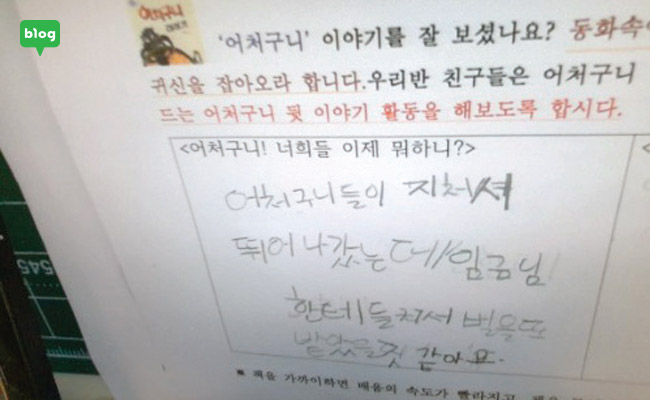 blog
어처구니
'어처구니' 이야기를 잘 보셨나요? 동화속
귀신을 잡아오라 합니다.우리반 친구들은 어처구니
드는 어처구니 뒷 이야기 활동을 해보도록 합시다.
<어처구니! 너희들 이제 뭐하니?>
어처구니들이 지쳐셔
뛰어 나갔는데 임금님
한테 들켜서 벌을 또
받았을 것 같아요.
545
* 책을 가까이하면 배움의 속도가 빨라지고